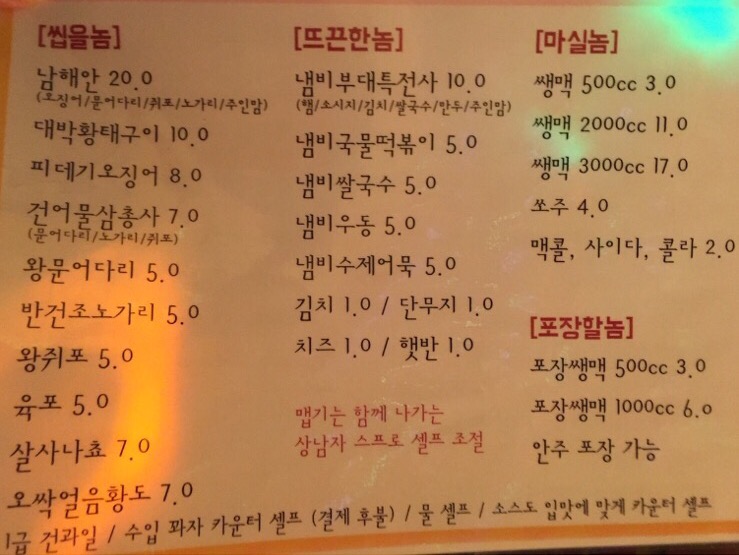 [씹을놈]
남해안 20.0
(오징어/문어다리/쥐포/노가리/주인맘)
대박황태구이 10.0
피데기오징어 8.0
건어물삼총사 7.0
(문어다리/노가리/쥐포)
왕문어다리 5.0
반건조노가리 5.0
왕쥐포 5.0
육포 5.0
살사나쵸 7.0
오싹얼음황도 7.0
[뜨끈한놈]
냄비부대특전사 10.0
(햄/소시지/김치/쌀국수/만두/주인맘)
냄비국물떡볶이 5.0
냄비쌀국수 5.0
냄비우동 5.0
냄비수제어묵 5.0
김치 1.0 / 단무지 1.0
치즈 1.0 / 햇반 1.0
맵기는 함께 나가는
상남자 스프로 셀프 조절
[마실놈]
쌩맥 500cc 3.0
쌩맥 2000cc 11.0
쌩맥 3000cc 17.0
쏘주 4.0
맥콜, 사이다, 콜라 2.0
[포장할놈]
포장쌩맥 500cc 3.0
포장쌩맥 1000cc 6.0
안주 포장 가능
1급 건과일 / 수입 꽈자 카운터 셀프 (결제 후불) / 물 셀프 / 소스도 입맛에 맞게 카운터 셀프